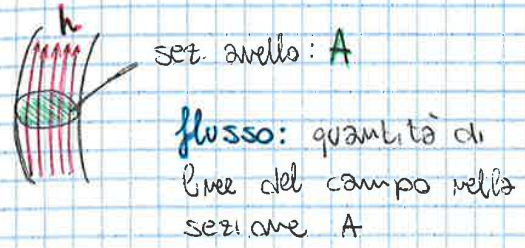 h
sez. anello: A
flusso: quantità di
linee del campo nella
sezione A